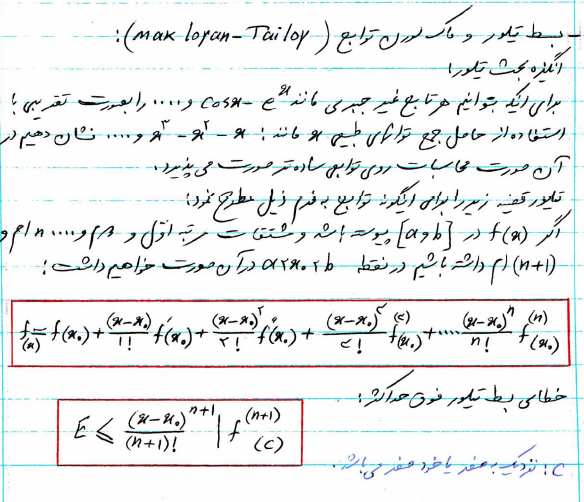 - بسط تیلور و ماک لورن توابع (mak loran-Tailoy):
انگیزه بحث تیلور:
برای اینکه بتوانیم هر تابع غیر جبری مانند cosx - e^x و .... را بصورت تقریبی با
استفاده از حاصل جمع توانهای طبیعی x مانند: x - x^۲ - x^۳ و .... نشان دهیم در
آن صورت محاسبات روی توابع ساده تر صورت می پذیرد.
تیلور قضیه زیر را برای اینگونه توابع به فرم ذیل مطرح نمود:
اگر f(x) در [a و b] پیوسته باشد و مشتقات مرتبه اول و دوم و .... n ام و
(n+1) ام داشته باشیم در نقطه a<x.<b در آن صورت خواهیم داشت:
f(x) = f(x.) + (x-x.)/1! f'(x.) + (x-x.)^۲/۲! f''(x.) + (x-x.)^۳/۳! f^(۳)(x.) + .... (x-x.)^n/n! f^(n)(x.)
خطای بسط تیلور فوق حداکثر:
E ≤ (x-x.)^n+1/(n+1)! | f^(n+1)(c)
c: نزدیک به صفر یا خود صفر می باشد.